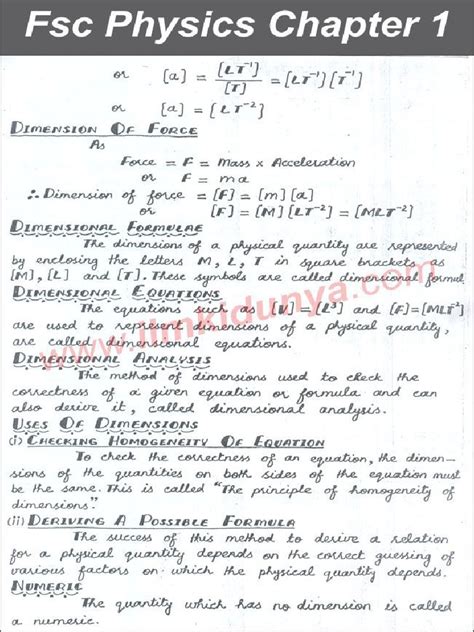 Fsc Physics Chapter 1
or [a] = [LT⁻¹] / [T] = [LT⁻¹] [T⁻¹]
or [a] = [LT⁻²]
DIMENSION OF FORCE
As
Force = F = Mass x Acceleration
or F = ma
∴ Dimension of force = [F] = [m] [a]
or [F] = [M] [LT⁻²] = [MLT⁻²]
DIMENSIONAL FORMULAE
The dimensions of a physical quantity are represented
by enclosing the letters M, L, T in square brackets as
[M], [L] and [T]. These symbols are called dimensional formul
DIMENSIONAL EQUATIONS
The equations such as [V] = [L³] and [F]=[MLT⁻²]
are used to represent dimensions of a physical quantity,
are called dimensional equations.
DIMENSIONAL ANALYSIS
The method of dimensions used to check the
correctness of a given equation or formula and can
also derive it, called dimensional analysis.
USES OF DIMENSIONS
(i) CHECKING HOMOGENEITY OF EQUATION
To check the correctness of an equation, the dimen-
sions of the quantities on both sides of the equation must
be the same. This is called "The principle of homogeneity of
dimensions."
(ii) DERIVING A POSSIBLE FORMULA
The success of this method to derive a relation
for a physical quantity depends on the correct guessing of
various factors on which the physical quantity depends.
NUMERIC
The quantity which has no dimension is called
a numeric.
www.ilmkidunya.com